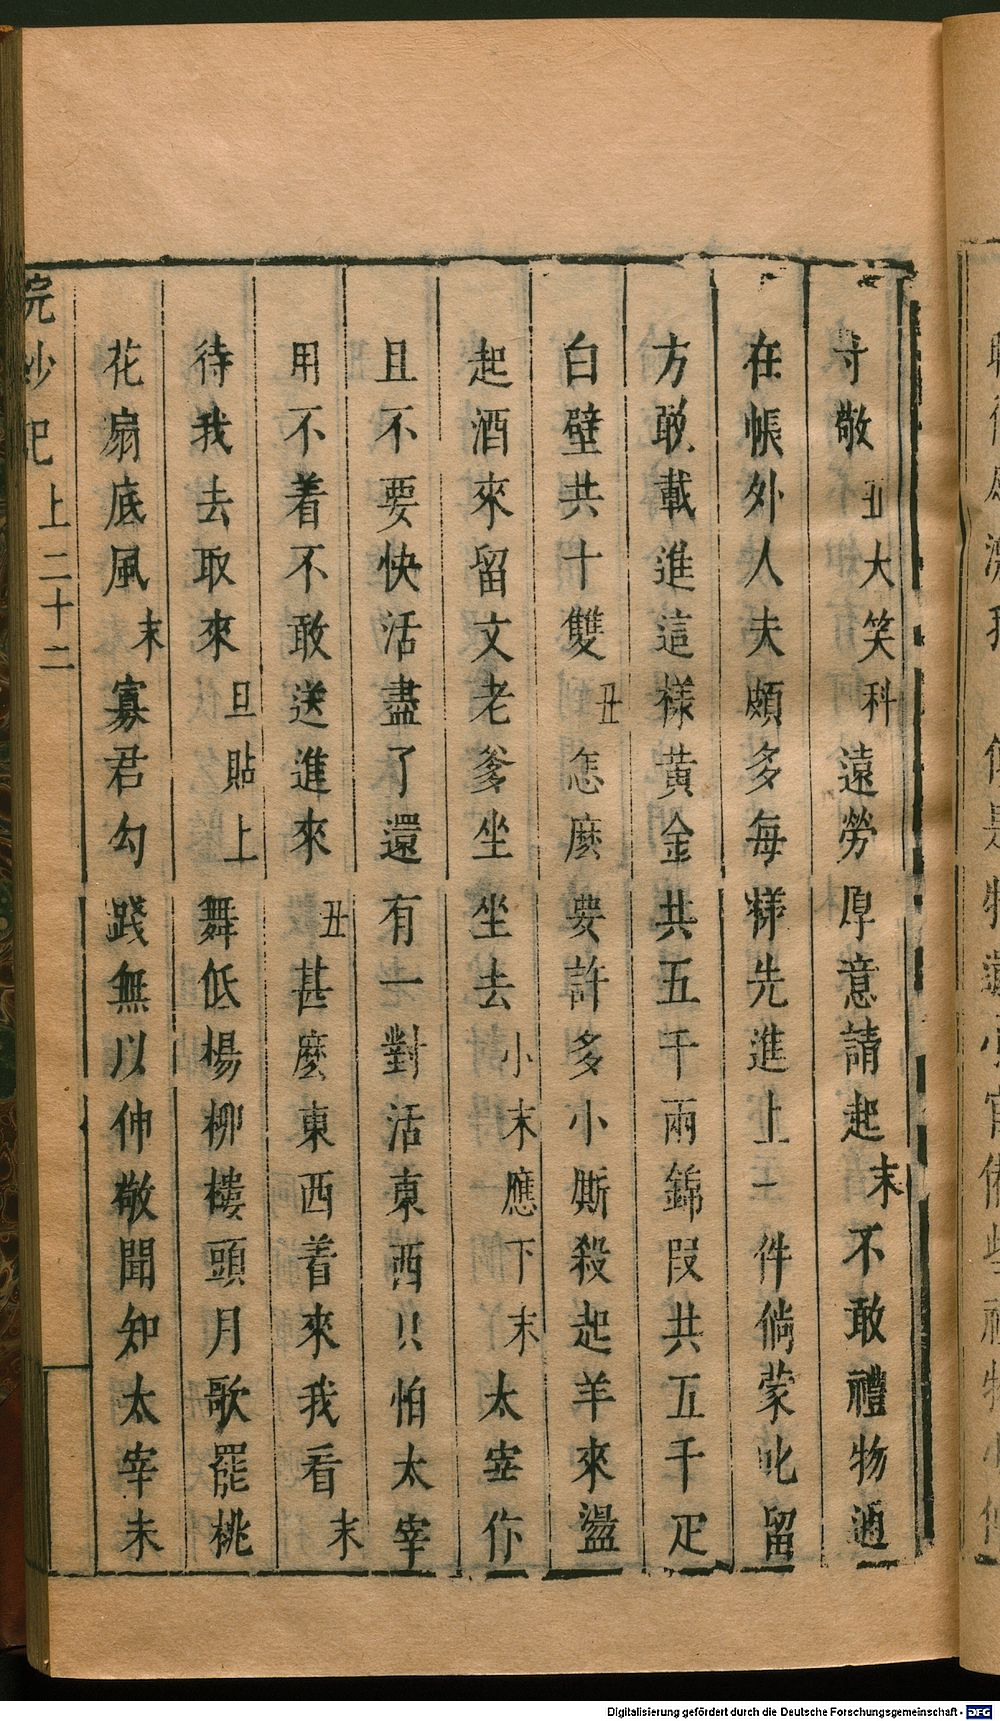 寸敬丑大笑科遠勞厚意請起末不敢禮物通
在帳外人夫頗多每樣先進上一件倘蒙叱留
方敢載進這樣黃金共五千兩錦段共五千疋
白璧共十雙丑怎麽要許多小厮殺起羊來盪
起酒來留文老爹坐坐去小末應下末太宰你
且不要快活盡了還有一對活東西只怕太宰
用不着不敢送進來丑甚麽東西着來我看末
待我去取來旦貼上舞低楊柳樓頭月歌罷桃
花扇底風末寡君勾踐無以伸敬聞知太宰未
浣紗記 上二十二
Digitalisierung gefördert durch die Deutsche Forschungsgemeinschaft - DFG